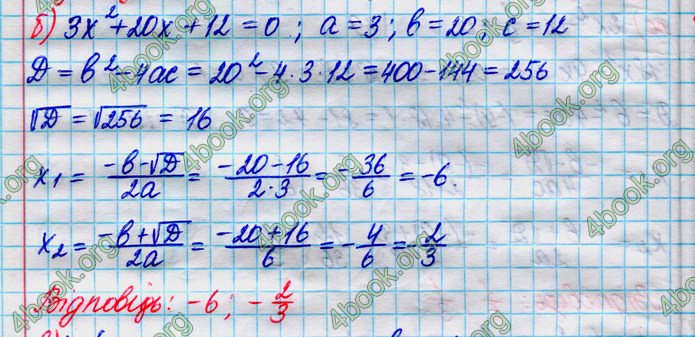 б) 3x² + 20x + 12 = 0 ; a = 3 ; b = 20 ; c = 12
D = b² - 4ac = 20² - 4 · 3 · 12 = 400 - 144 = 256
√D = √256 = 16
x₁ = (-b - √D)/(2a) = (-20 - 16)/(2 · 3) = -36/6 = -6.
x₂ = (-b + √D)/(2a) = (-20 + 16)/6 = -4/6 = -2/3
Відповідь: -6 ; -2/3
4book.org